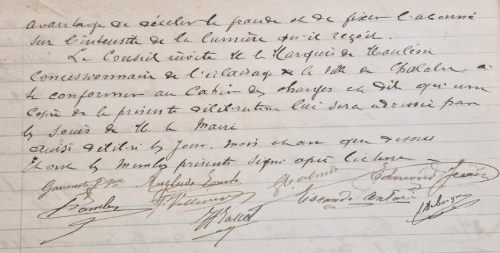 avantage de déceler la fraude et de fixer l'abonné
sur l'intensité de la lumière qu'il reçoit.
Le Conseil invite M. le Marquis de Mauléon
concessionnaire de l'éclairage de la ville de Chalabre à
se conformer au Cahier des charges et dit qu'une
copie de la présente délibération lui sera adressée par
les soins de M. le Maire
Ainsi délibéré les jour, mois et an que dessus
Et ont les membres présents signé après lecture
Edmond
Escande Antoine